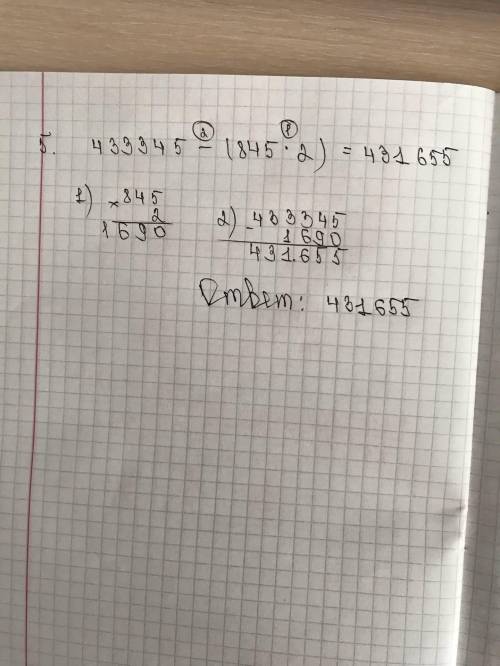 5. 433345 − (845 · 2) = 431655
2 1
1) × 845
2
1690
2) - 433345
1690
431655
Ответ: 431655